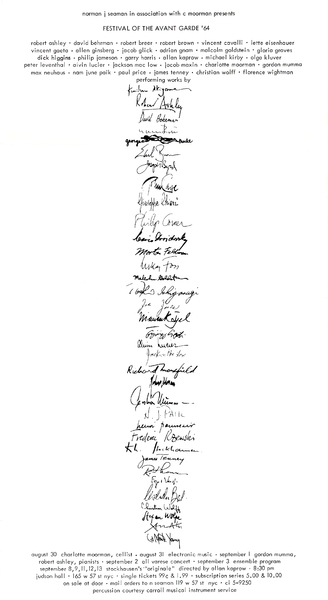 norman j seaman in association with c moorman presents
FESTIVAL OF THE AVANT GARDE '64
robert ashley • david behrman • robert breer • robert brown • vincent cavalli • lette eisenhauer
vincent gaeta • allen ginsberg • jacob glick • adrian gnam • malcolm goldstein • gloria graves
dick higgins • philip jameson • garry harris • allan kaprow • michael kirby • olga kluver
peter leventhal • alvin lucier • jackson mac low • jacob maxin • charlotte moorman • gordon mumma
max neuhaus • nam june paik • paul price • james tenney • christian wolff • florence wightman
performing works by
Robert Ashley
David Behrman
george
Earle Brown
Joseph Byrd
John Cage
Giuseppe Chiari
Philip Corner
Mario Davidovsky
Morton Feldman
Lukas Foss
Malcolm Goldstein
Toshi Ichiyanagi
Joe Jones
Mauricio Kagel
György Ligeti
Alvin Lucier
Jackson Mac Low
Richard Maxfield
Gordon Mumma
N. J. PAIK
henri pousseur
Frederic Rzewski
K. Stockhausen
James Tenney
Christian Wolff
Stefan Wolpe
La Monte Young
august 30 charlotte moorman, cellist • august 31 electronic music • september 1 gordon mumma,
robert ashley, pianists • september 2 all varese concert • september 3 ensemble program
september 8,9,11,12,13 stockhausen's "originale" directed by allan kaprow • 8:30 pm
judson hall • 165 w 57 st nyc • single tickets 99c & 1.99 • subscription series 5.00 & 10.00
on sale at door • mail orders to n seaman 119 w 57 st nyc • ci 5-9250
percussion courtesy carroll musical instrument service